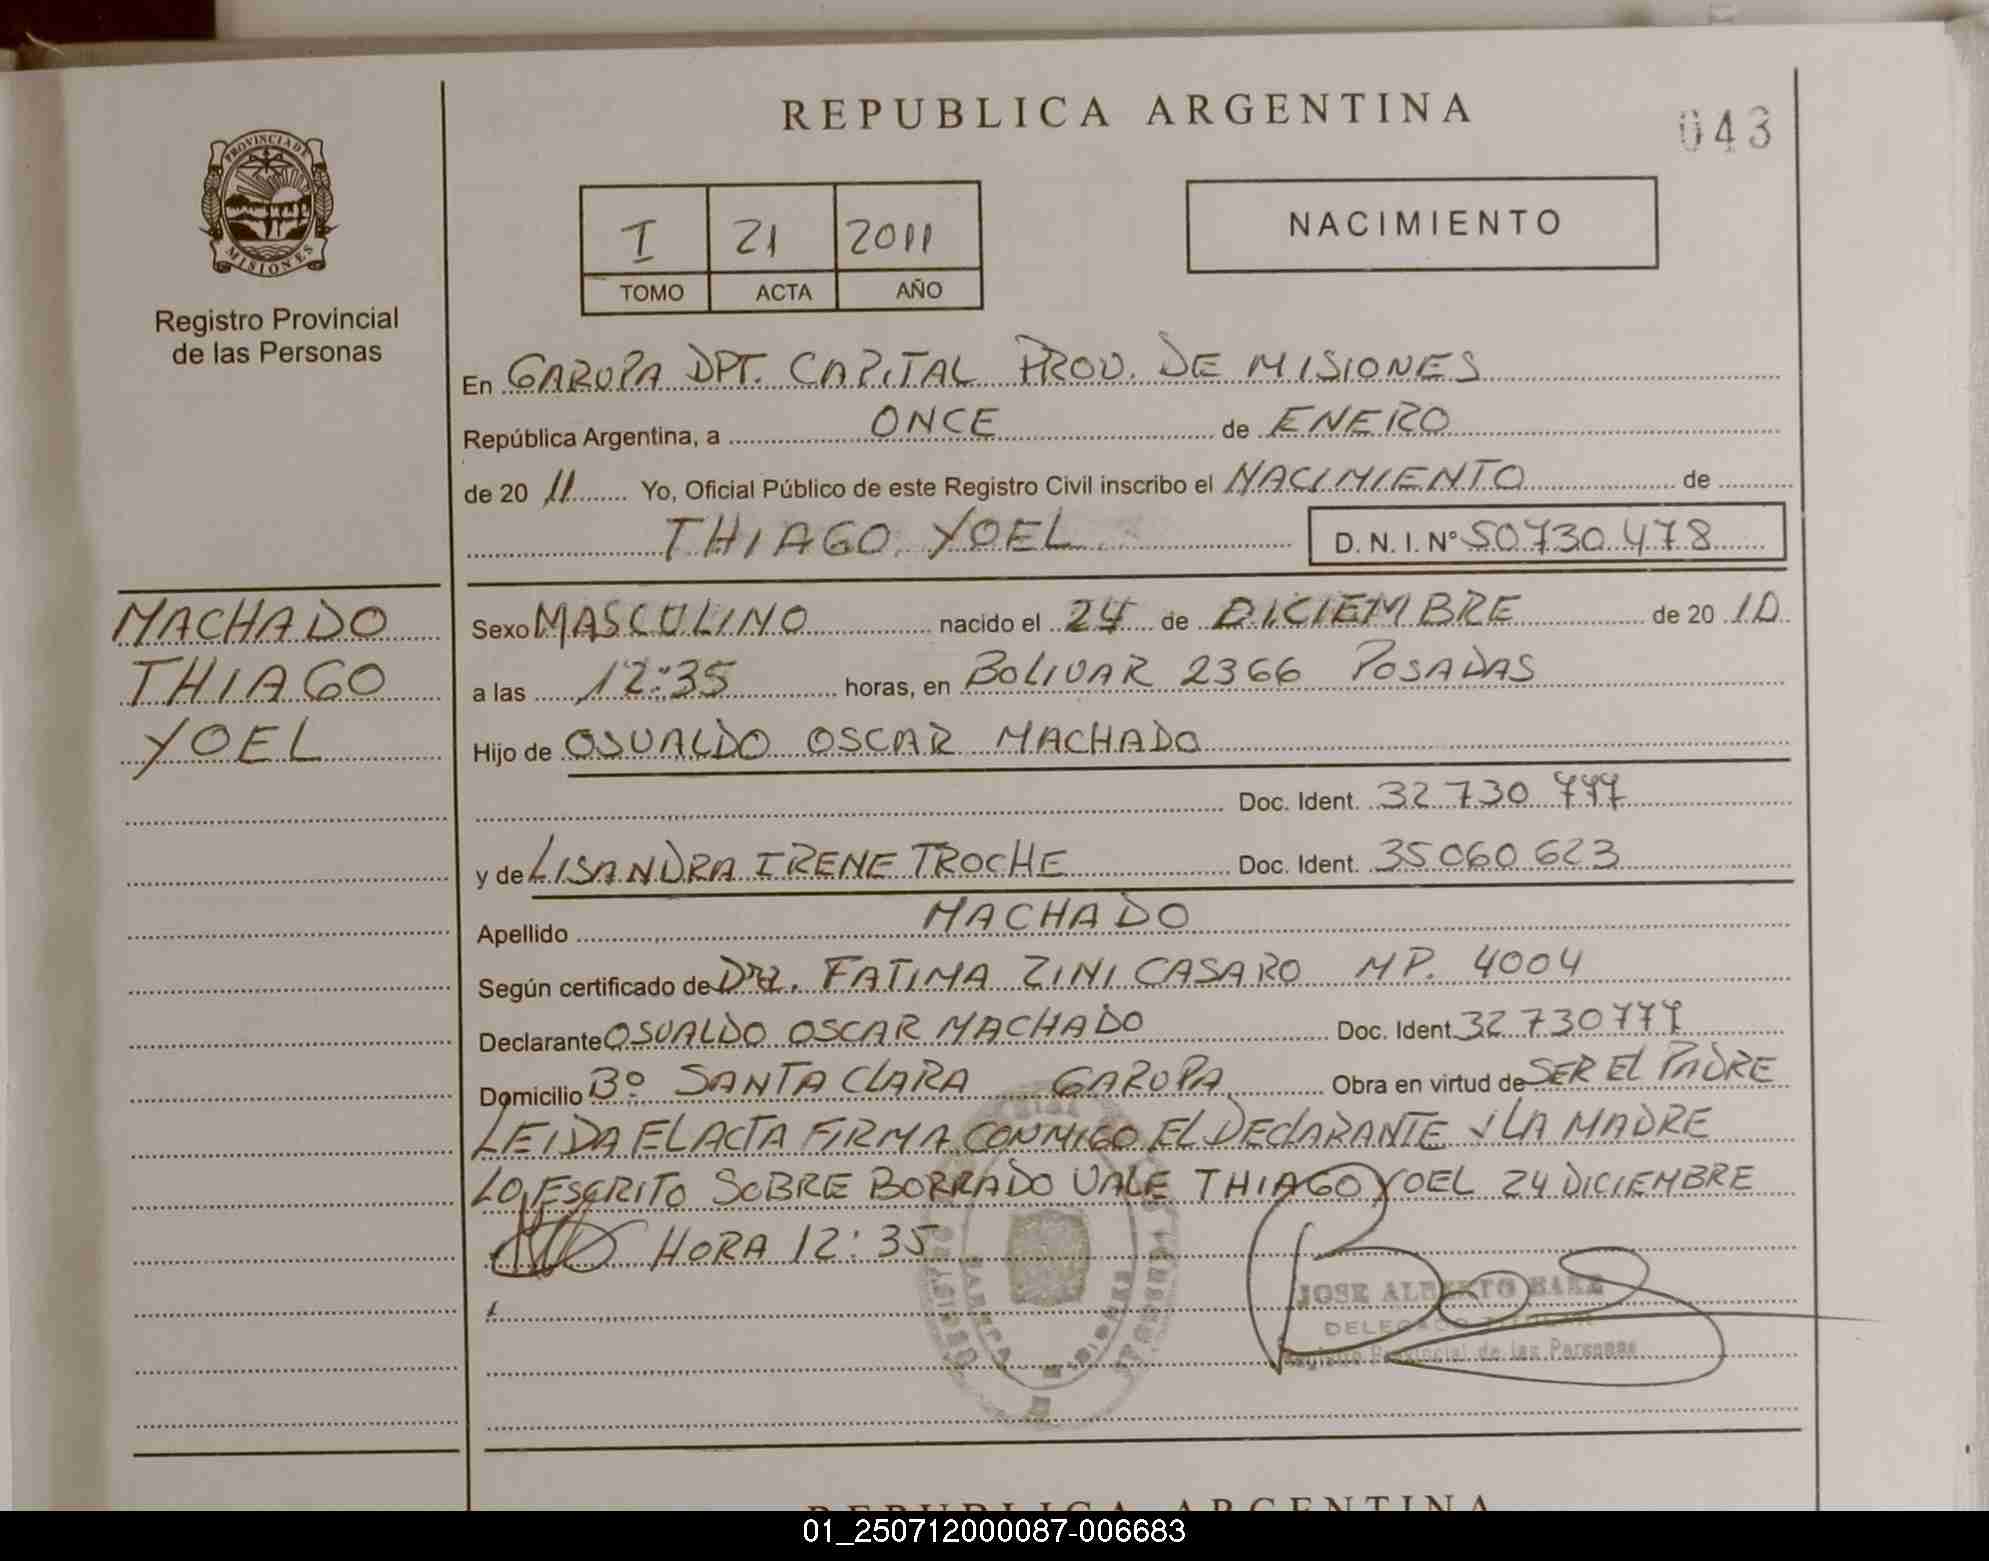 REPUBLICA ARGENTINA
043
PROVINCIA DE
MISIONES
Registro Provincial
de las Personas
I 21 2011
TOMO ACTA AÑO
NACIMIENTO
En GARUPA DPT. CAPITAL PROV. DE MISIONES
República Argentina, a ONCE de ENERO
de 20 11 Yo, Oficial Público de este Registro Civil inscribo el NACIMIENTO de
THIAGO YOEL D. N. I. N° 50730478
MACHADO
THIAGO
YOEL
Sexo MASCULINO nacido el 24 de DICIEMBRE de 20 10
a las 12:35 horas, en BOLIVAR 2366 POSADAS
Hijo de OSVALDO OSCAR MACHADO
Doc. Ident. 32 730 777
y de LISANDRA IRENE TROCHE Doc. Ident. 35060623
Apellido MACHADO
Según certificado de Dra. FATIMA ZINI CASARO MP. 4004
Declarante OSVALDO OSCAR MACHADO Doc. Ident. 32 730777
Domicilio B° SANTA CLARA GARUPA Obra en virtud de SER EL PADRE
LEIDA EL ACTA FIRMA CONMIGO EL DECLARANTE Y LA MADRE
LO ESCRITO SOBRE BORRADO VALE THIAGO YOEL 24 DICIEMBRE
HORA 12:35
JOSE ALBERTO BAEZ
DELEGADO TITULAR
Registro Provincial de las Personas
REPUBLICA ARGENTINA
01_250712000087-006683